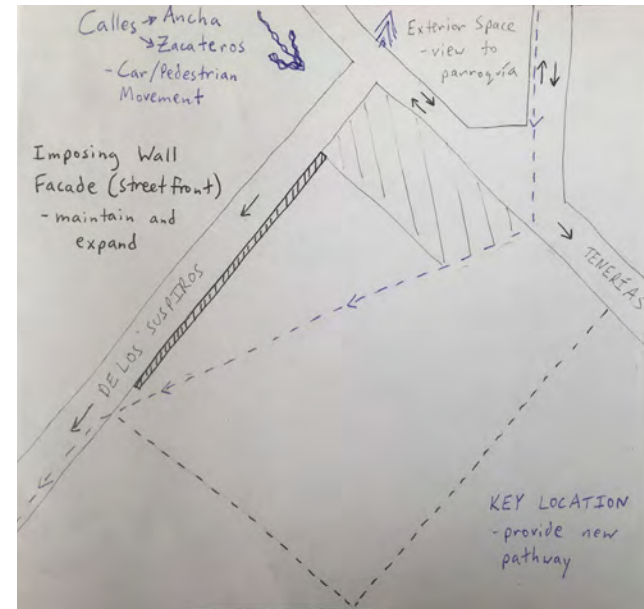 Calles → Ancha
→ Zacateros
- Car/Pedestrian
Movement
Exterior Space
- view to
parroquía
Imposing Wall
Facade (streetfront)
- maintain and
expand
DE LOS SUSPIROS
TENERÍAS
KEY LOCATION
- provide new
pathway